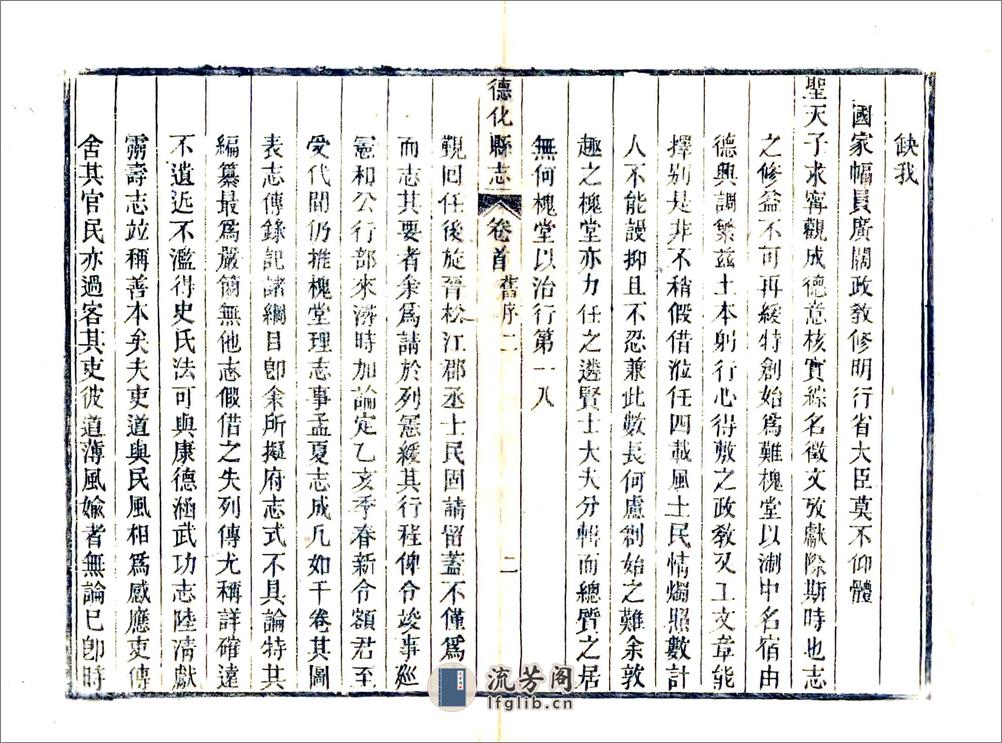 缺我
國家幅員廣闊政教修明行省大臣莫不仰體
聖天子求寧觀成德意核實綜名徵文攷獻際斯時也志
之修益不可再緩特創始爲難槐堂以淛中名宿由
德興調繁茲土本躬行心得敷之政教又工文章能
擇别是非不稍假借涖任四載風土民情燭照數計
人不能謾抑且不忍兼此數長何慮創始之難余敦
趣之槐堂亦力任之遴賢士大夫分輯而總質之居
無何槐堂以治行第一入
德化縣志
卷首
舊序二
二
覲回任後旋晉松江郡丞士民固請留葢不僅爲
而志其要者余爲請於列憲緩其行程俾令竣事廵
憲和公行部來潯時加論定乙亥季春新令額君至
受代間仍推槐堂理志事孟夏志成凡如干卷其圖
表志傳錄記諸綱目卽余所擬府志式不具論特其
編纂最爲嚴簡無他志假借之失列傳尤稱詳確遠
不遺近不濫得史氏法可與康德涵武功志陸清獻
霛壽志竝稱善本矣夫吏道與民風相爲感應吏傳
舍其官民亦過客其吏彼道薄風媮者無論已卽時
流芳阁
lfglib.cn